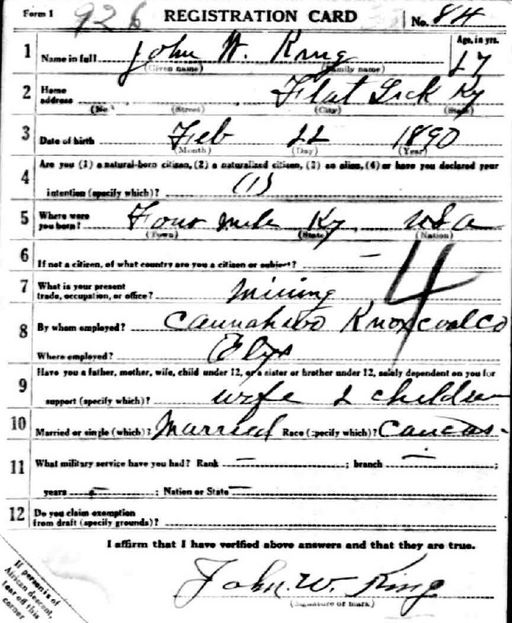 Form 1 926 REGISTRATION CARD No. 84
1 Name in full John W. King Age, in yrs. 27
(Given name) (Family name)
2 Home address Flat Lick Ky
(No.) (Street) (City) (State)
3 Date of birth Feb 22 1890
(Month) (Day) (Year)
4 Are you (1) a natural-born citizen, (2) a naturalized citizen, (3) an alien, (4) or have you declared your
intention (specify which)? (1)
5 Where were you born? Four mile Ky USA
(Town) (State) (Nation)
6 If not a citizen, of what country are you a citizen or subject? —
7 What is your present trade, occupation, or office? mining 4
8 By whom employed? Knox coal co
Where employed? Elys
9 Have you a father, mother, wife, child under 12, or a sister or brother under 12, solely dependent on you for
support (specify which)? wife 2 children
10 Married or single (which)? Married Race (specify which)? Caucas-
11 What military service have you had? Rank — ; branch —
years — ; Nation or State —
12 Do you claim exemption from draft (specify grounds)?
I affirm that I have verified above answers and that they are true.
John. W. King
(Signature or mark)
If person is of
African descent,
tear off this
corner